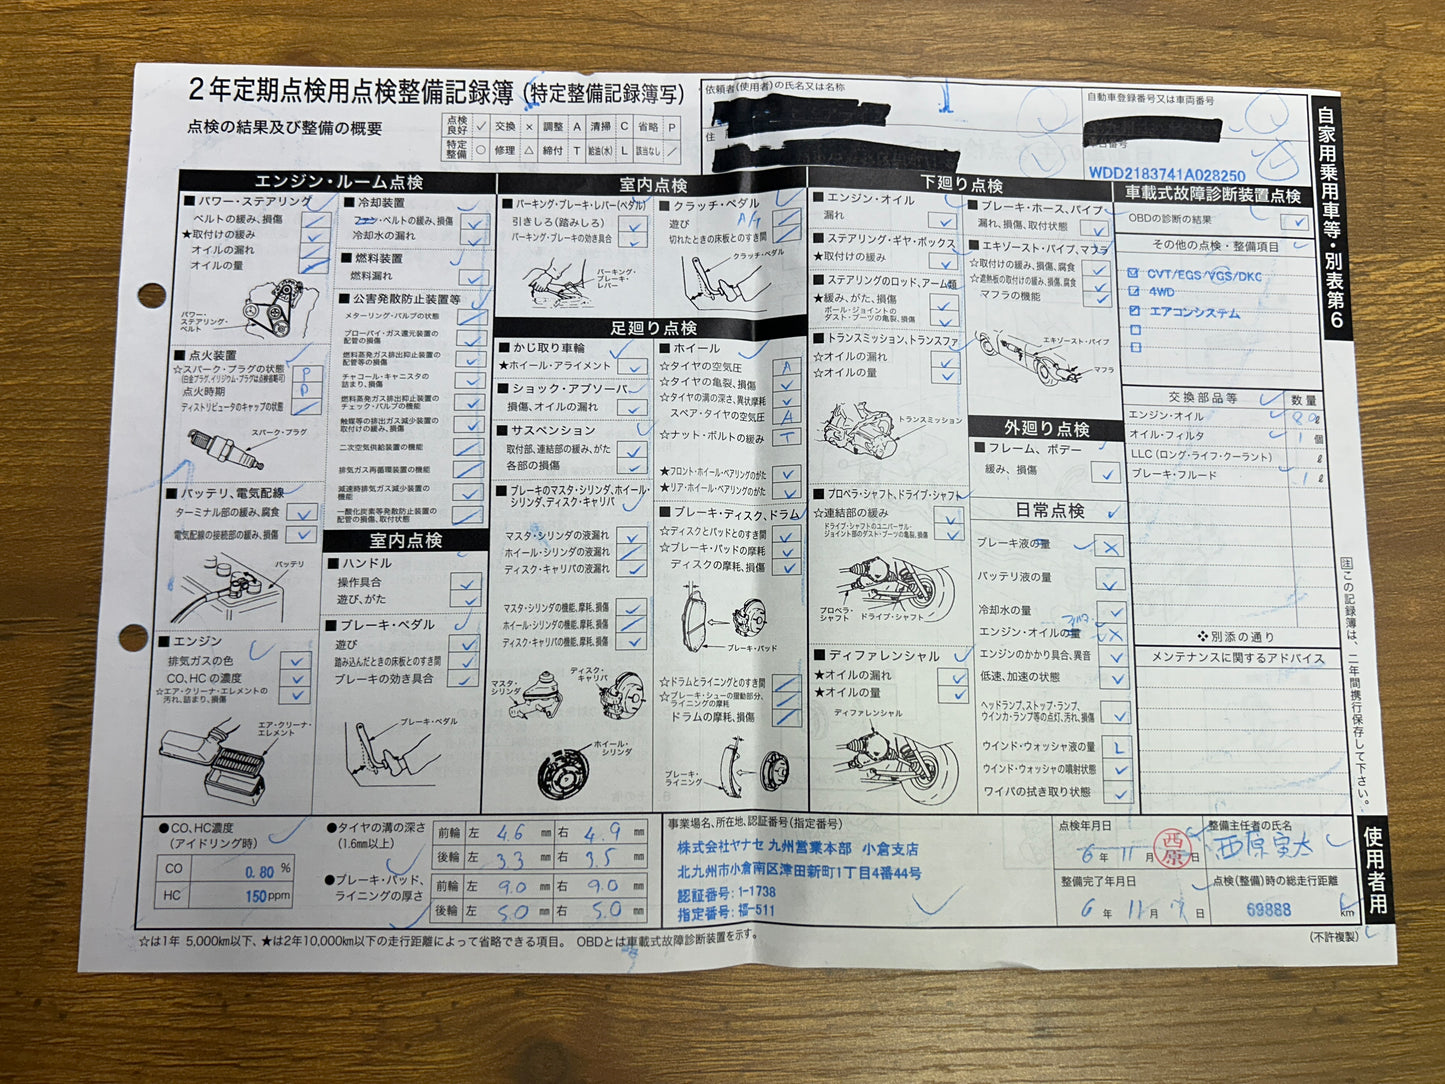 2年定期点検用点検整備記録簿(特定整備記録簿写)
点検の結果及び整備の概要
点検良好 ✓ 交換 × 調整 A 清掃 C 省略 P
特定整備 ○ 修理 △ 締付 T 給油(水) L 該当なし ／
依頼者(使用者)の氏名又は名称
住
自動車登録番号又は車両番号
車台番号
WDD2183741A028250
自家用乗用車等・別表第6
エンジン・ルーム点検
■パワー・ステアリング
ベルトの緩み、損傷
★取付けの緩み
オイルの漏れ
オイルの量
パワー・ステアリング・ベルト
■点火装置
☆スパーク・プラグの状態 P
(白金プラグ、イリジウム・プラグは点検省略可)
点火時期 P
ディストリビュータのキャップの状態
スパーク・プラグ
■バッテリ、電気配線
ターミナル部の緩み、腐食
電気配線の接続部の緩み、損傷
バッテリ
■エンジン
排気ガスの色
CO、HCの濃度
☆エア・クリーナ・エレメントの汚れ、詰まり、損傷
エア・クリーナ・エレメント
■冷却装置
ファン・ベルトの緩み、損傷
冷却水の漏れ
■燃料装置
燃料漏れ
■公害発散防止装置等
メターリング・バルブの状態
ブローバイ・ガス還元装置の配管の損傷
燃料蒸発ガス排出抑止装置の配管等の損傷
チャコール・キャニスタの詰まり、損傷
燃料蒸発ガス排出抑止装置のチェック・バルブの機能
触媒等の排出ガス減少装置の取付けの緩み、損傷
二次空気供給装置の機能
排気ガス再循環装置の機能
減速時排気ガス減少装置の機能
一酸化炭素等発散防止装置の配管の損傷、取付状態
室内点検
■ハンドル
操作具合
遊び、がた
■ブレーキ・ペダル
遊び
踏み込んだときの床板とのすき間
ブレーキの効き具合
ブレーキ・ペダル
室内点検
■パーキング・ブレーキ・レバー(ペダル)
引きしろ(踏みしろ)
パーキング・ブレーキの効き具合
パーキング・ブレーキ・レバー
■クラッチ・ペダル
遊び A/T
切れたときの床板とのすき間
クラッチ・ペダル
足廻り点検
■かじ取り車輪
★ホイール・アライメント
■ショック・アブソーバ
損傷、オイルの漏れ
■サスペンション
取付部、連結部の緩み、がた
各部の損傷
■ブレーキのマスタ・シリンダ、ホイール・シリンダ、ディスク・キャリパ
マスタ・シリンダの液漏れ
ホイール・シリンダの液漏れ
ディスク・キャリパの液漏れ
マスタ・シリンダの機能、摩耗、損傷
ホイール・シリンダの機能、摩耗、損傷
ディスク・キャリパの機能、摩耗、損傷
マスタ・シリンダ
ディスク・キャリパ
ホイール・シリンダ
■ホイール
☆タイヤの空気圧 A
☆タイヤの亀裂、損傷
☆タイヤの溝の深さ、異状摩耗
スペア・タイヤの空気圧 A
☆ナット・ボルトの緩み T
★フロント・ホイール・ベアリングのがた
★リア・ホイール・ベアリングのがた
■ブレーキ・ディスク、ドラム
☆ディスクとパッドとのすき間
☆ブレーキ・パッドの摩耗
ディスクの摩耗、損傷
ブレーキ・パッド
☆ドラムとライニングとのすき間
☆ブレーキ・シューの摺動部分、ライニングの摩耗
ドラムの摩耗、損傷
ブレーキ・ライニング
下廻り点検
■エンジン・オイル
漏れ
■ステアリング・ギヤ・ボックス
★取付けの緩み
■ステアリングのロッド、アーム類
★緩み、がた、損傷
ボール・ジョイントのダスト・ブーツの亀裂、損傷
■トランスミッション、トランスファ
☆オイルの漏れ
☆オイルの量
トランスミッション
■プロペラ・シャフト、ドライブ・シャフト
☆連結部の緩み
ドライブ・シャフトのユニバーサル・ジョイント部のダスト・ブーツの亀裂、損傷
プロペラ・シャフト
ドライブ・シャフト
■ディファレンシャル
★オイルの漏れ
★オイルの量
ディファレンシャル
■ブレーキ・ホース、パイプ
漏れ、損傷、取付状態
■エキゾースト・パイプ、マフラ
☆取付けの緩み、損傷、腐食
☆遮熱板の取付けの緩み、損傷、腐食
マフラの機能
エキゾースト・パイプ
マフラ
外廻り点検
■フレーム、ボデー
緩み、損傷
日常点検
ブレーキ液の量 ×
バッテリ液の量
冷却水の量
エンジン・オイルの量 ×
エンジンのかかり具合、異音
低速、加速の状態
ヘッドランプ、ストップ・ランプ、ウインカ・ランプ等の点灯、汚れ、損傷
ウインド・ウォッシャ液の量 L
ウインド・ウォッシャの噴射状態
ワイパの拭き取り状態
車載式故障診断装置点検
OBDの診断の結果
その他の点検・整備項目
CVT/EGS/VGS/DKG
4WD
エアコンシステム
交換部品等 数量
エンジン・オイル 8.0 ℓ
オイル・フィルタ 1 個
LLC(ロング・ライフ・クーラント) ℓ
ブレーキ・フルード 1 ℓ
❖別添の通り
メンテナンスに関するアドバイス
注この記録簿は、二年間携行保存して下さい。
使用者用
●CO、HC濃度
(アイドリング時)
CO 0.80 %
HC 150 ppm
●タイヤの溝の深さ
(1.6mm以上)
前輪 左 4.6 mm 右 4.9 mm
後輪 左 3.3 mm 右 3.5 mm
●ブレーキ・パッド、ライニングの厚さ
前輪 左 9.0 mm 右 9.0 mm
後輪 左 5.0 mm 右 5.0 mm
事業場名、所在地、認証番号(指定番号)
株式会社ヤナセ 九州営業本部 小倉支店
北九州市小倉南区津田新町1丁目4番44号
認証番号:1-1738
指定番号:福-511
点検年月日
6年 11月 日
西原
整備主任者の氏名
整備完了年月日
6年 11月 7日
点検(整備)時の総走行距離
69888 km
☆は1年 5,000km以下、★は2年10,000km以下の走行距離によって省略できる項目。 OBDとは車載式故障診断装置を示す。
(不許複製)